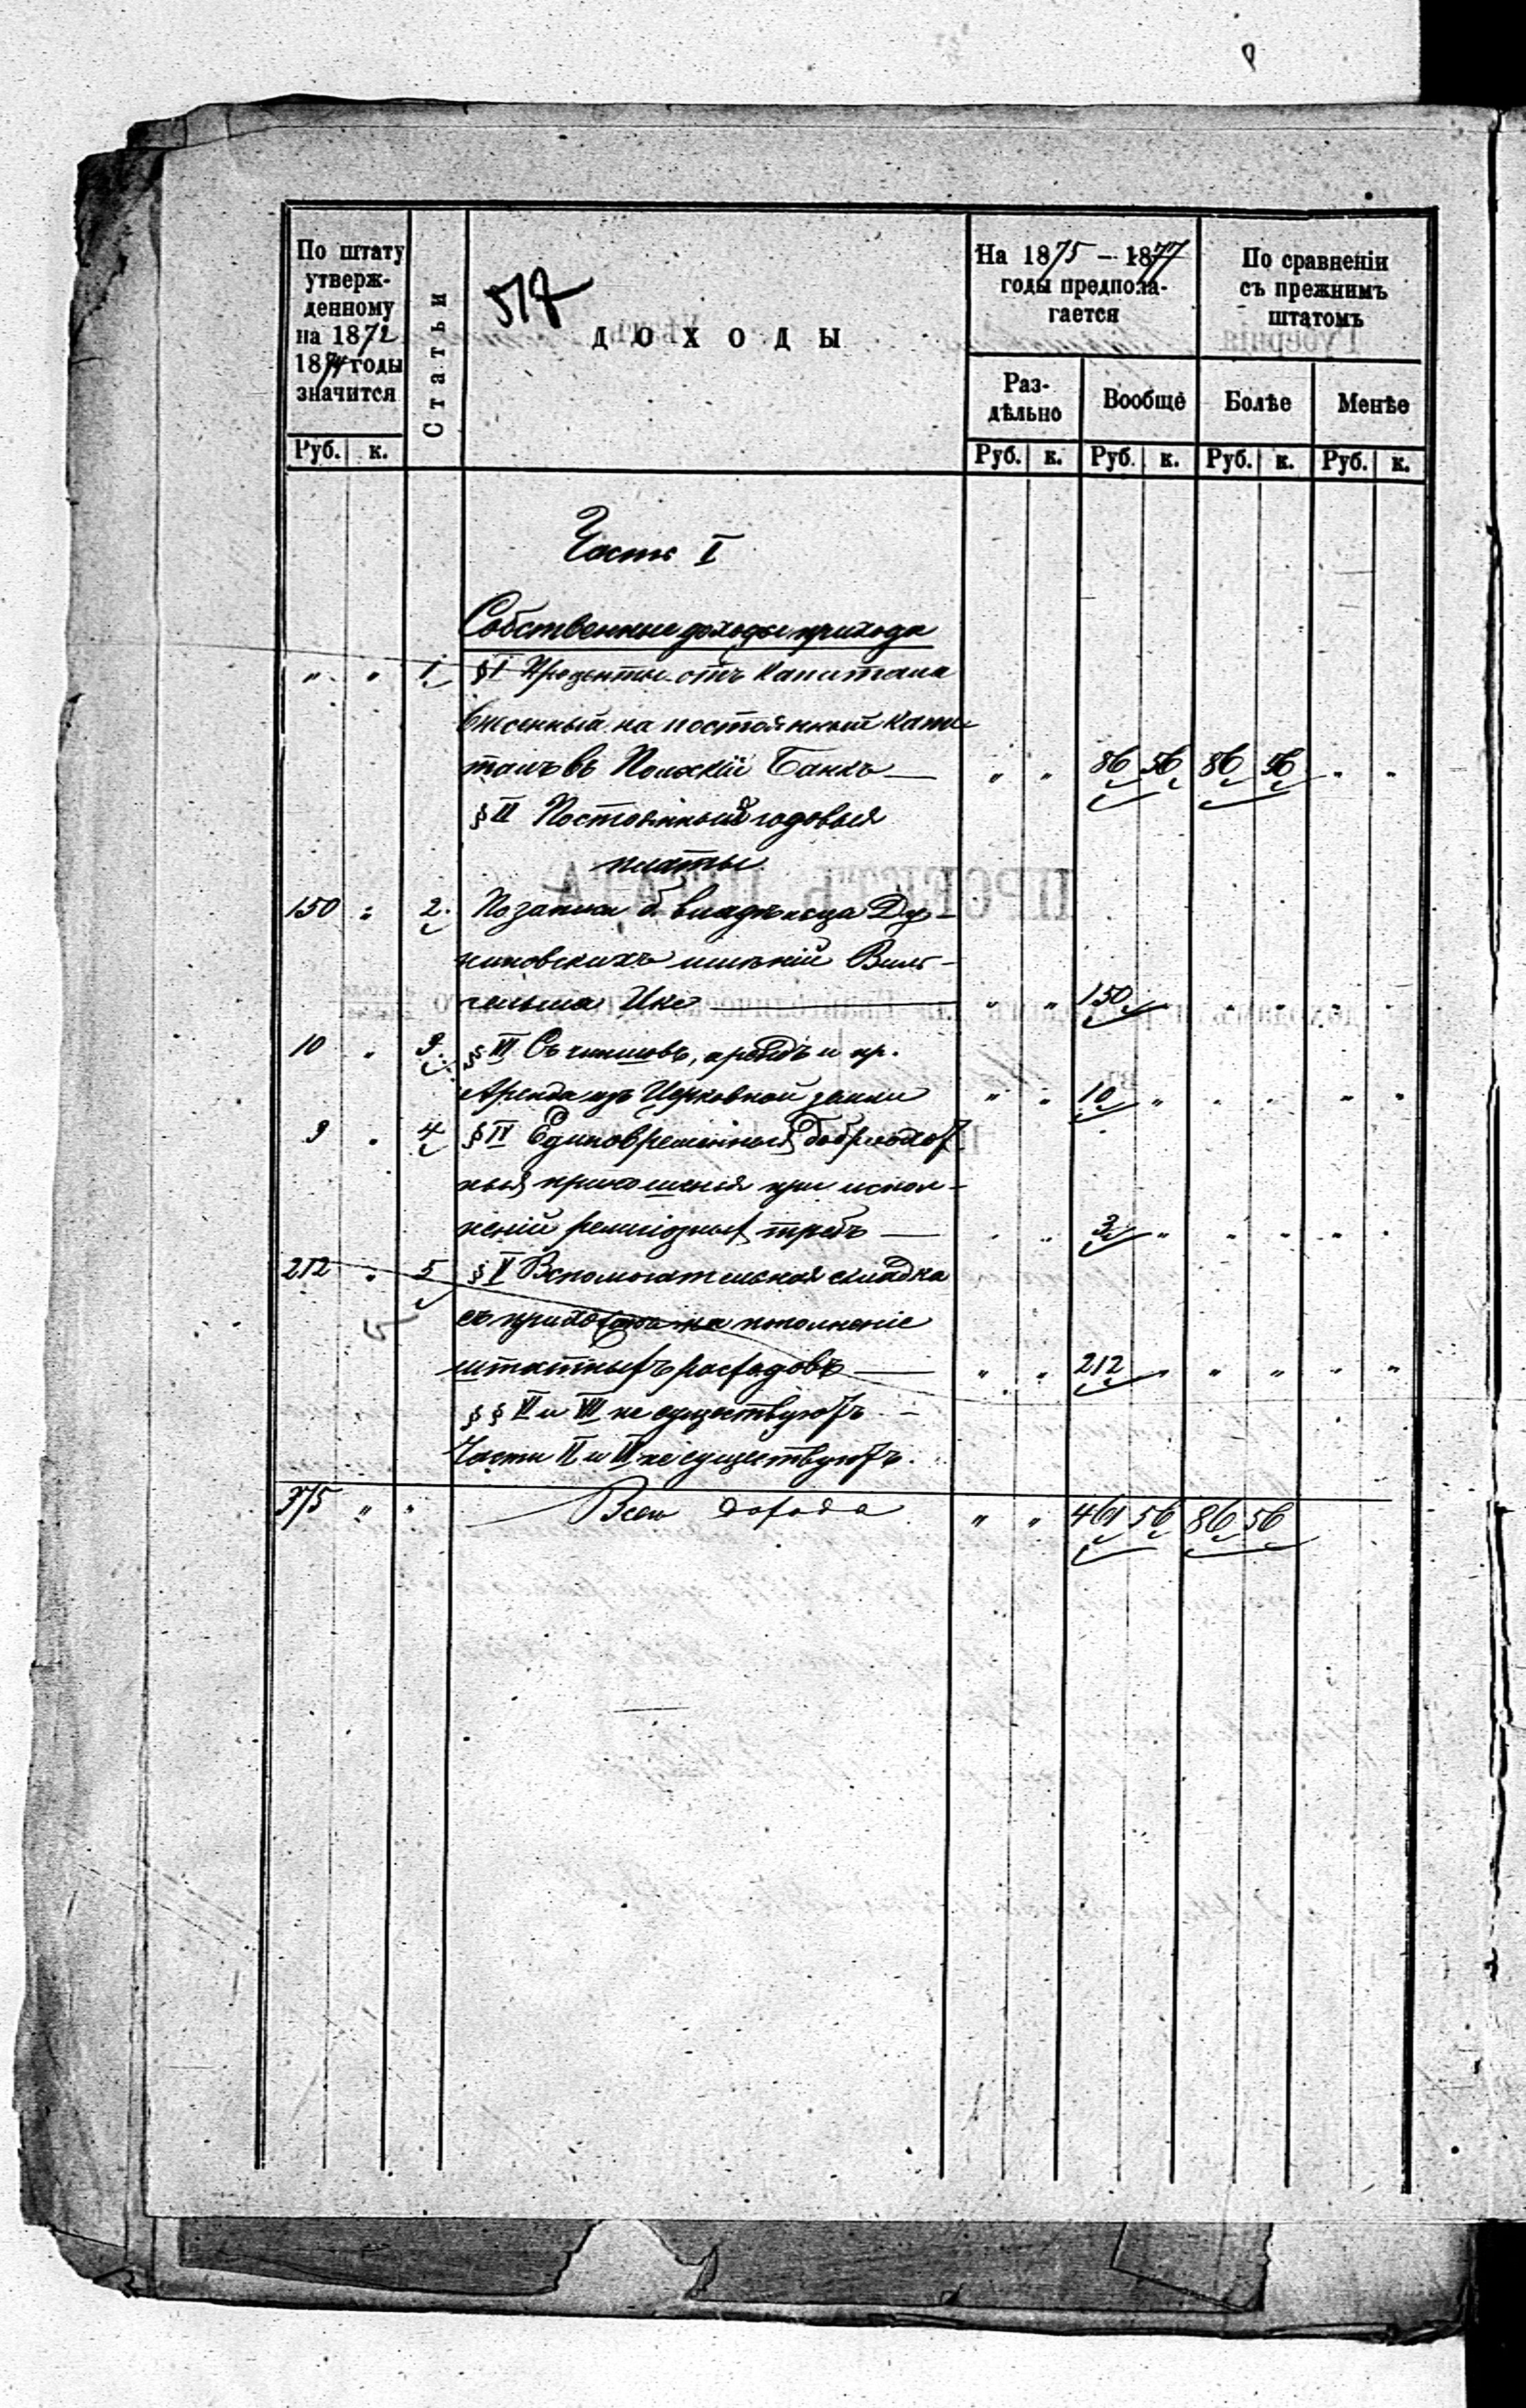 517
По штату
утверж-
денному
на 1872
1874 годы
значится
Руб. к.
Статьи
ДОХОДЫ
На 1875 – 1877
годы предпола-
гается
Раз-
дѣльно
Вообще
Руб. к. Руб. к.
По сравненіи
съ прежнимъ
штатомъ
Болѣе
Менѣе
Руб. к. Руб. к.
Часть I
Собственные доходы прихода
" " 1 § I Проценты отъ капитала
на постоянный капи-
талъ въ Польскій Банкъ — " " 86 56 86 56 " "
§ II Постоянныя годовыя
платы
150 " 2. По записи б. владѣльца Ду-
никовскихъ имѣній Виль-
гельма Ике — " " 150 " " " " "
10 " 3. § III Съ чиншовъ, арендъ и пр.
Аренда изъ Церковной земли " " 10 " " " " "
3 " 4 § IV Единовременныя доброхот-
ныя приношенія при испол-
неніи религіозныхъ требъ — " " 3 " " " " "
212 " 5 § V Вспомогательная складка
съ прихожанъ на пополненіе
штатныхъ расходовъ — " " 212 " " " " "
§ § VI и VII не существуютъ —
Части II и III не существуютъ.
375 " " Всего дохода " " 461 56 86 56